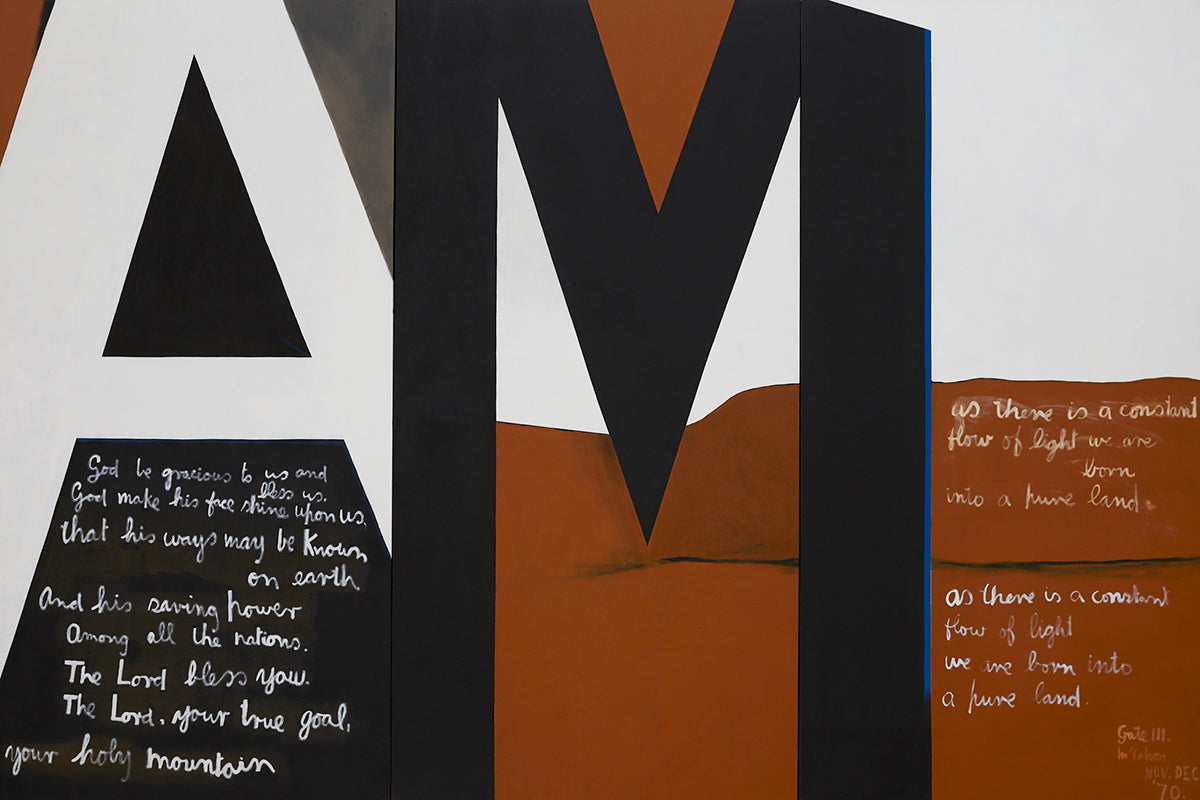 AM
God be gracious to us and
bless us.
God make his face shine upon us,
that his ways may be known
on earth
And his saving power
Among all the nations.
The Lord bless you.
The Lord, your true goal,
your holy mountain
as there is a constant
flow of light we are
born
into a pure land
as there is a constant
flow of light
we are born into
a pure land.
Gate III.
McCahon
NOV. DEC
'70.